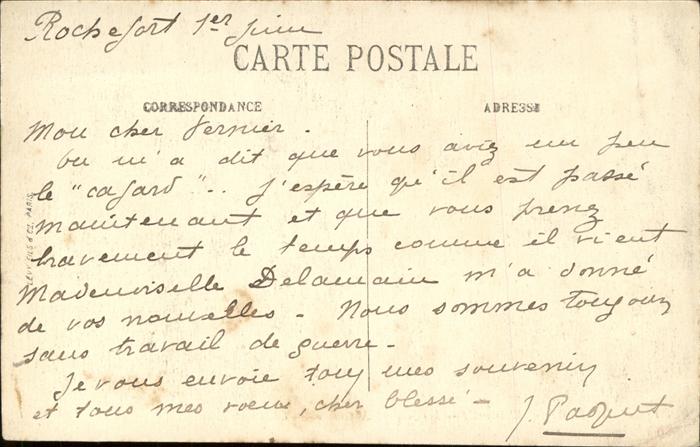 Rochefort 1er Juin
CARTE POSTALE
CORRESPONDANCE
ADRESSE
Mon cher Vernier.
On m'a dit que vous aviez un peu
le "cafard".. J'espère qu'il est passé
maintenant et que vous prenez
bravement le temps comme il vient
Mademoiselle Delamain m'a donné
de vos nouvelles - Nous sommes toujours
sans travail de guerre -
Je vous envoie tous mes souvenirs
et tous mes voeux, cher blessé -
J. Paquet
PARIS